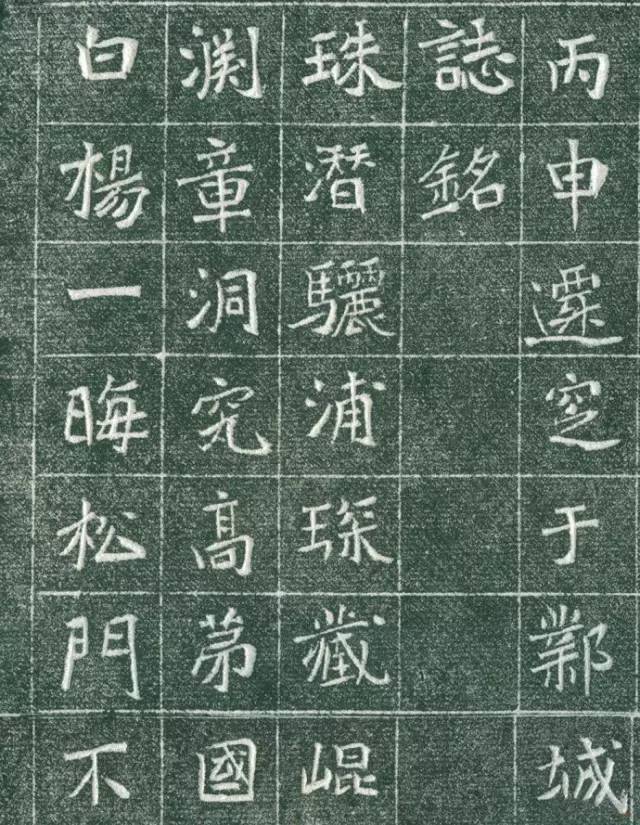 丙申遷窆于鄴城
誌銘
珠潛驪浦琛藏崐
渕章洞究高苐國
白楊一晦松門不